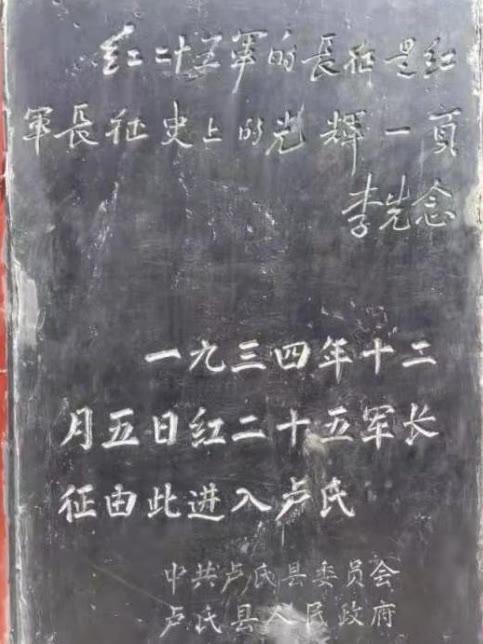 红二十五军的長征是红
軍長征史上的光輝一頁
李先念
一九三四年十二
月五日红二十五军长
征由此进入卢氏
中共卢氏县委员会
卢氏县人民政府